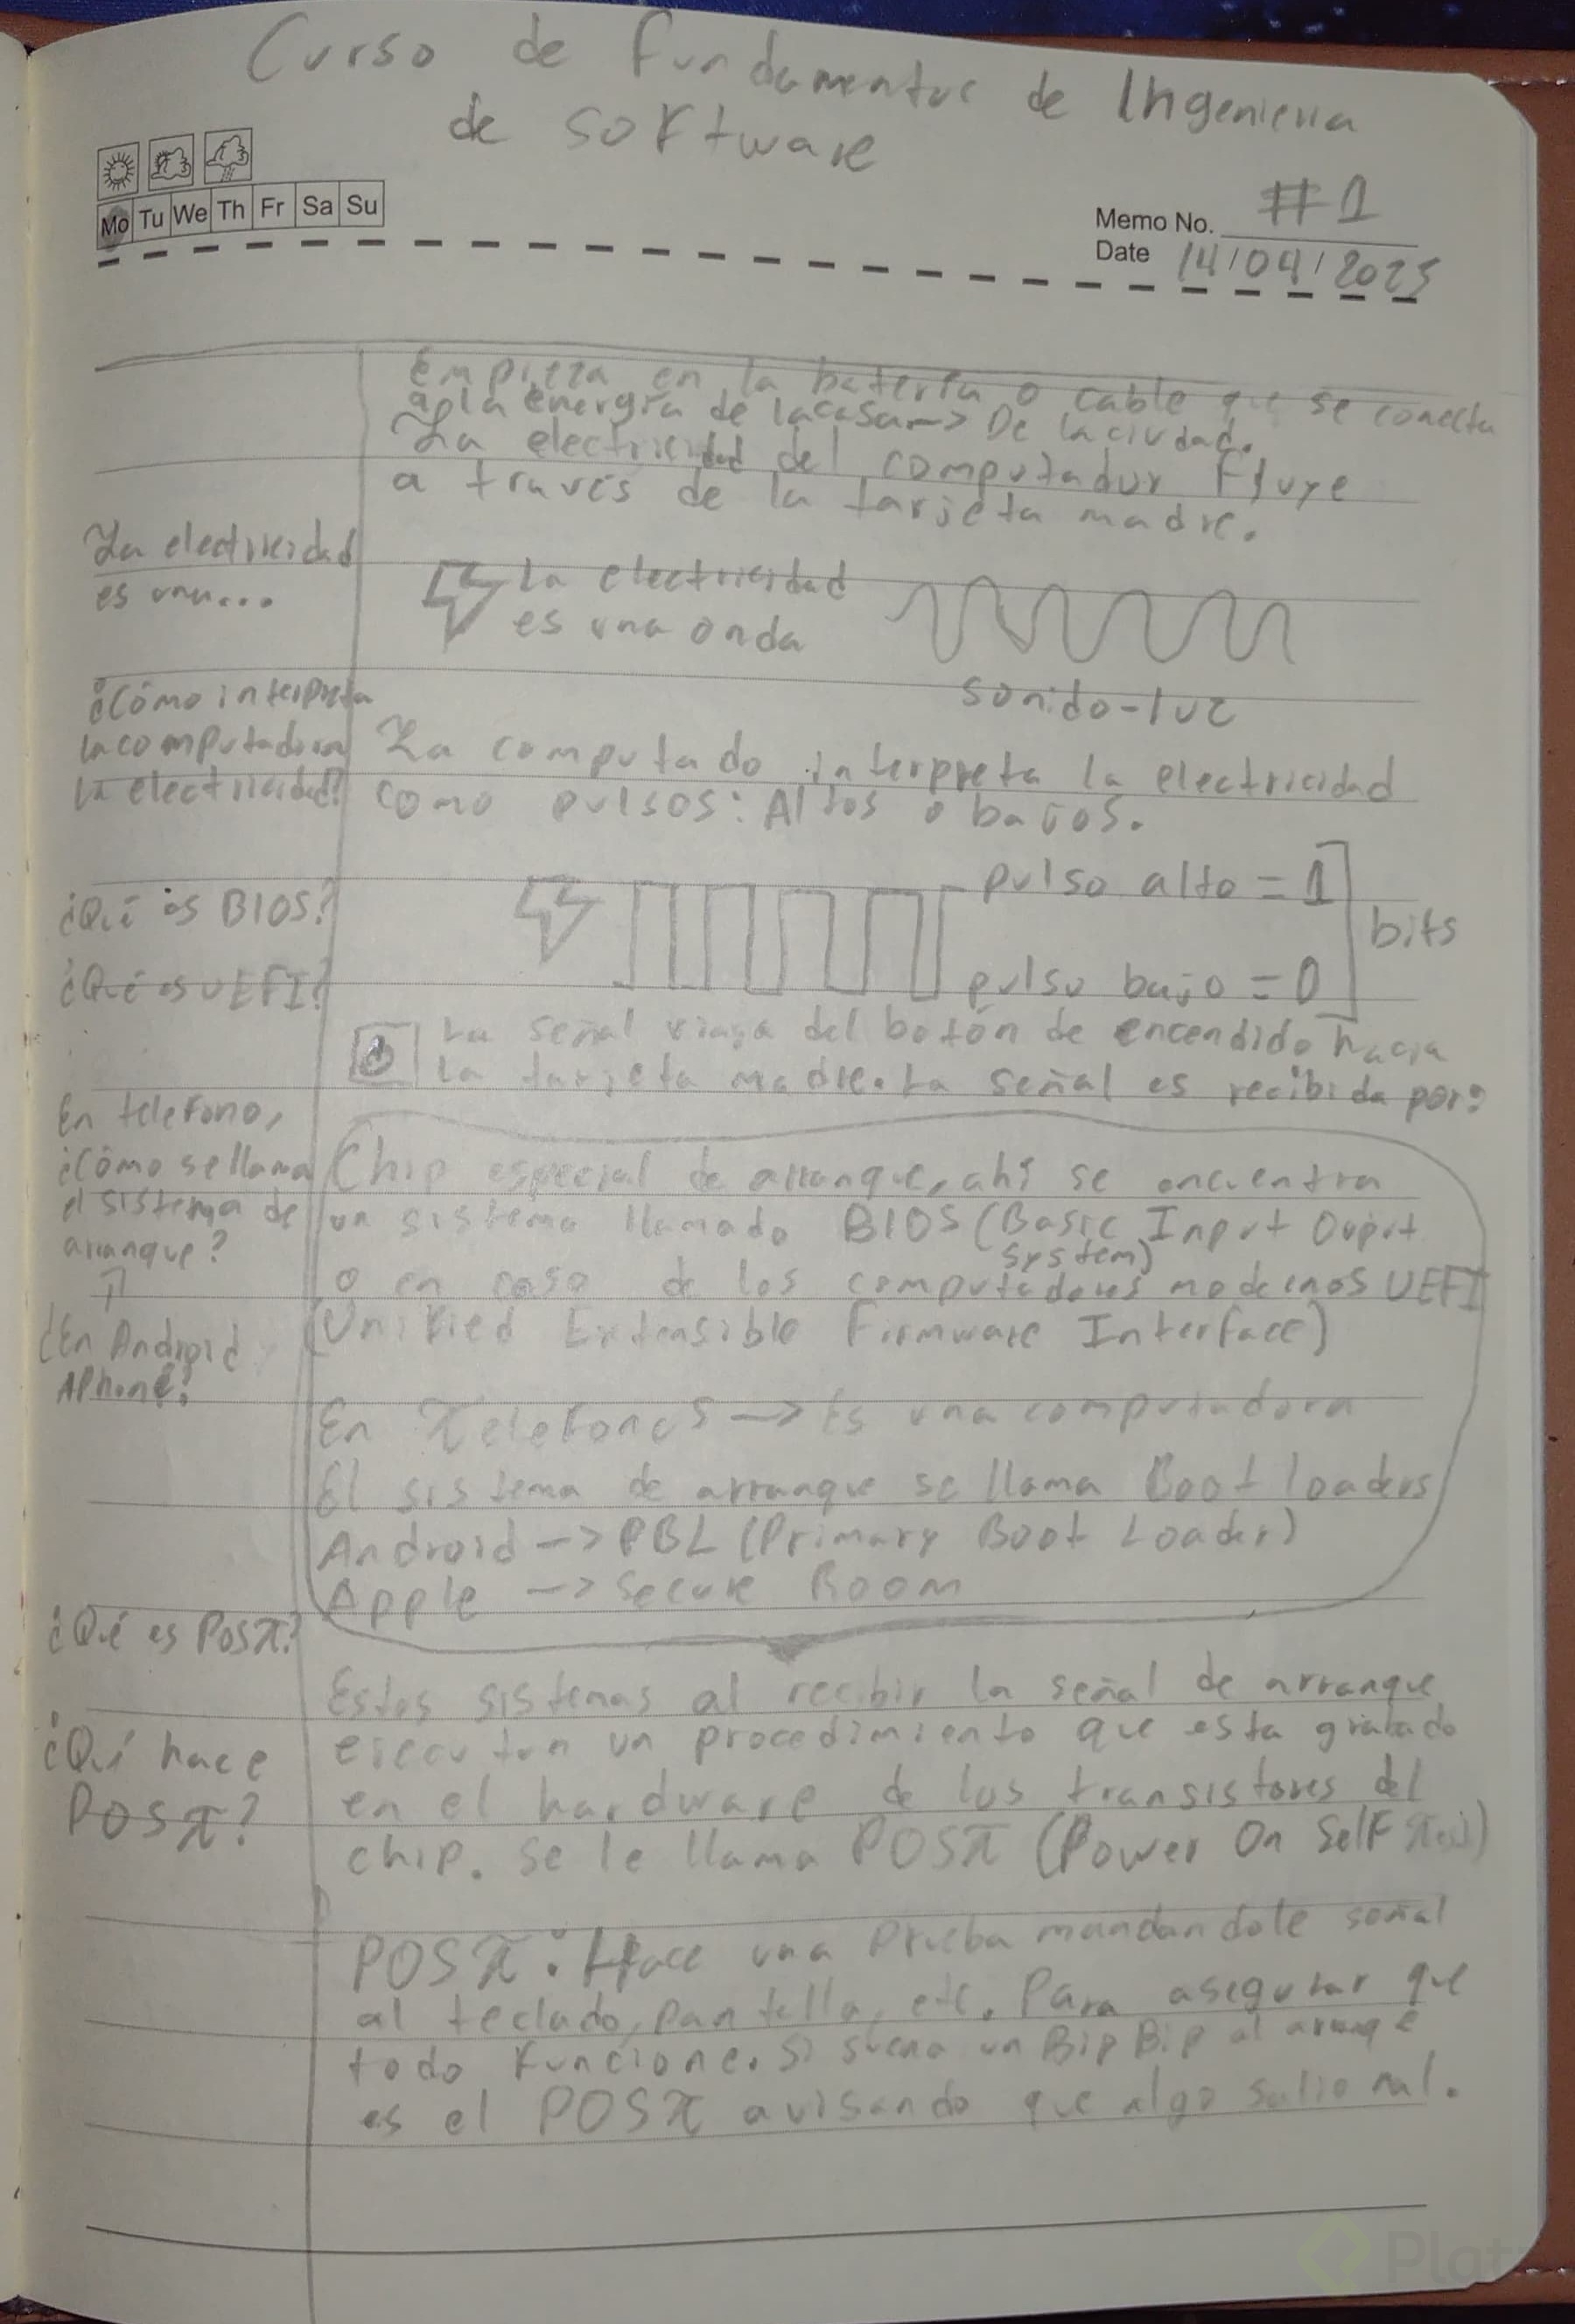 Curso de Fundamentos de Ingenieria
de software
Mo Tu We Th Fr Sa Su
Memo No. #1
Date 14/04/2025
Empieza en la batería o cable que se conecta
a la energía de la casa -> De la ciudad.
La electricidad del computador Fluye
a través de la tarjeta madre.
La electricidad
es una...
La electricidad
es una onda
sonido-luz
¿Cómo interpreta
la computadora
la electricidad?
La computado interpreta la electricidad
como pulsos: Altos o bajos.
¿Qué es BIOS?
¿Qué es UEFI?
pulso alto = 1
bits
pulso bajo = 0
La señal viaja del botón de encendido hacia
la tarjeta madre. La señal es recibida por:
En telefono,
¿Cómo se llama
el sistema de
arranque?
¿En Android
APhone?
Chip especial de arranque, ahí se encuentra
un sistema llamado BIOS (Basic Input Ouput
System)
o en caso de los computadores modernos UEFI
(Unified Extensible Firmware Interface)
En Telefonos -> Es una computadora
El sistema de arranque se llama Boot loaders
Android -> PBL (Primary Boot Loader)
Apple -> Secure Room
¿Qué es POST?
¿Qué hace
POST?
Estos sistemas al recibir la señal de arranque
ejecutan un procedimiento que esta grabado
en el hardware de los transistores del
chip. se le llama POST (Power On Self Test)
POST: Hace una Prueba mandandole señal
al teclado, pantalla, etc. Para asegurar que
todo Funcione. Si suena un Bip Bip al arranque
es el POST avisando que algo salio mal.